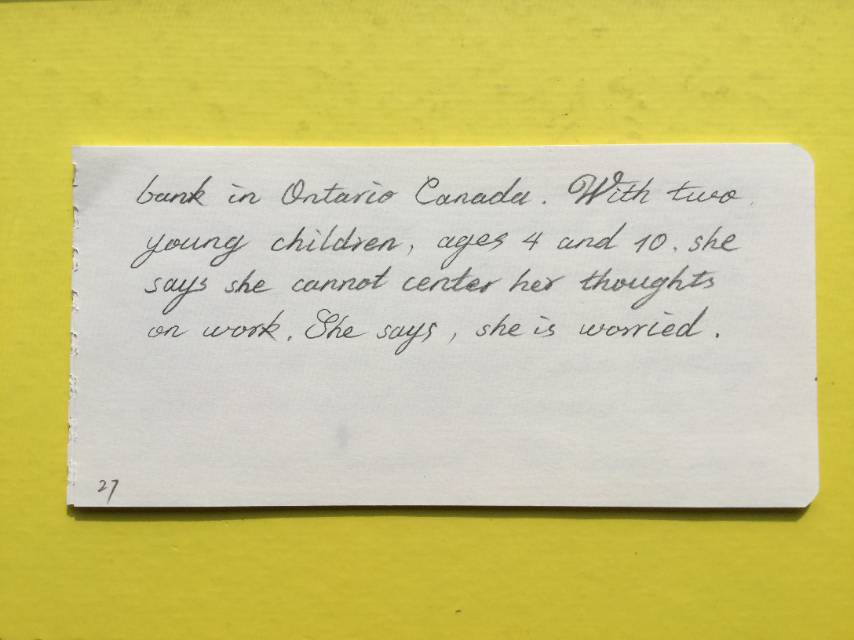 bank in Ontario Canada. With two
young children, ages 4 and 10. she
says she cannot center her thoughts
on work. She says, she is worried.
27